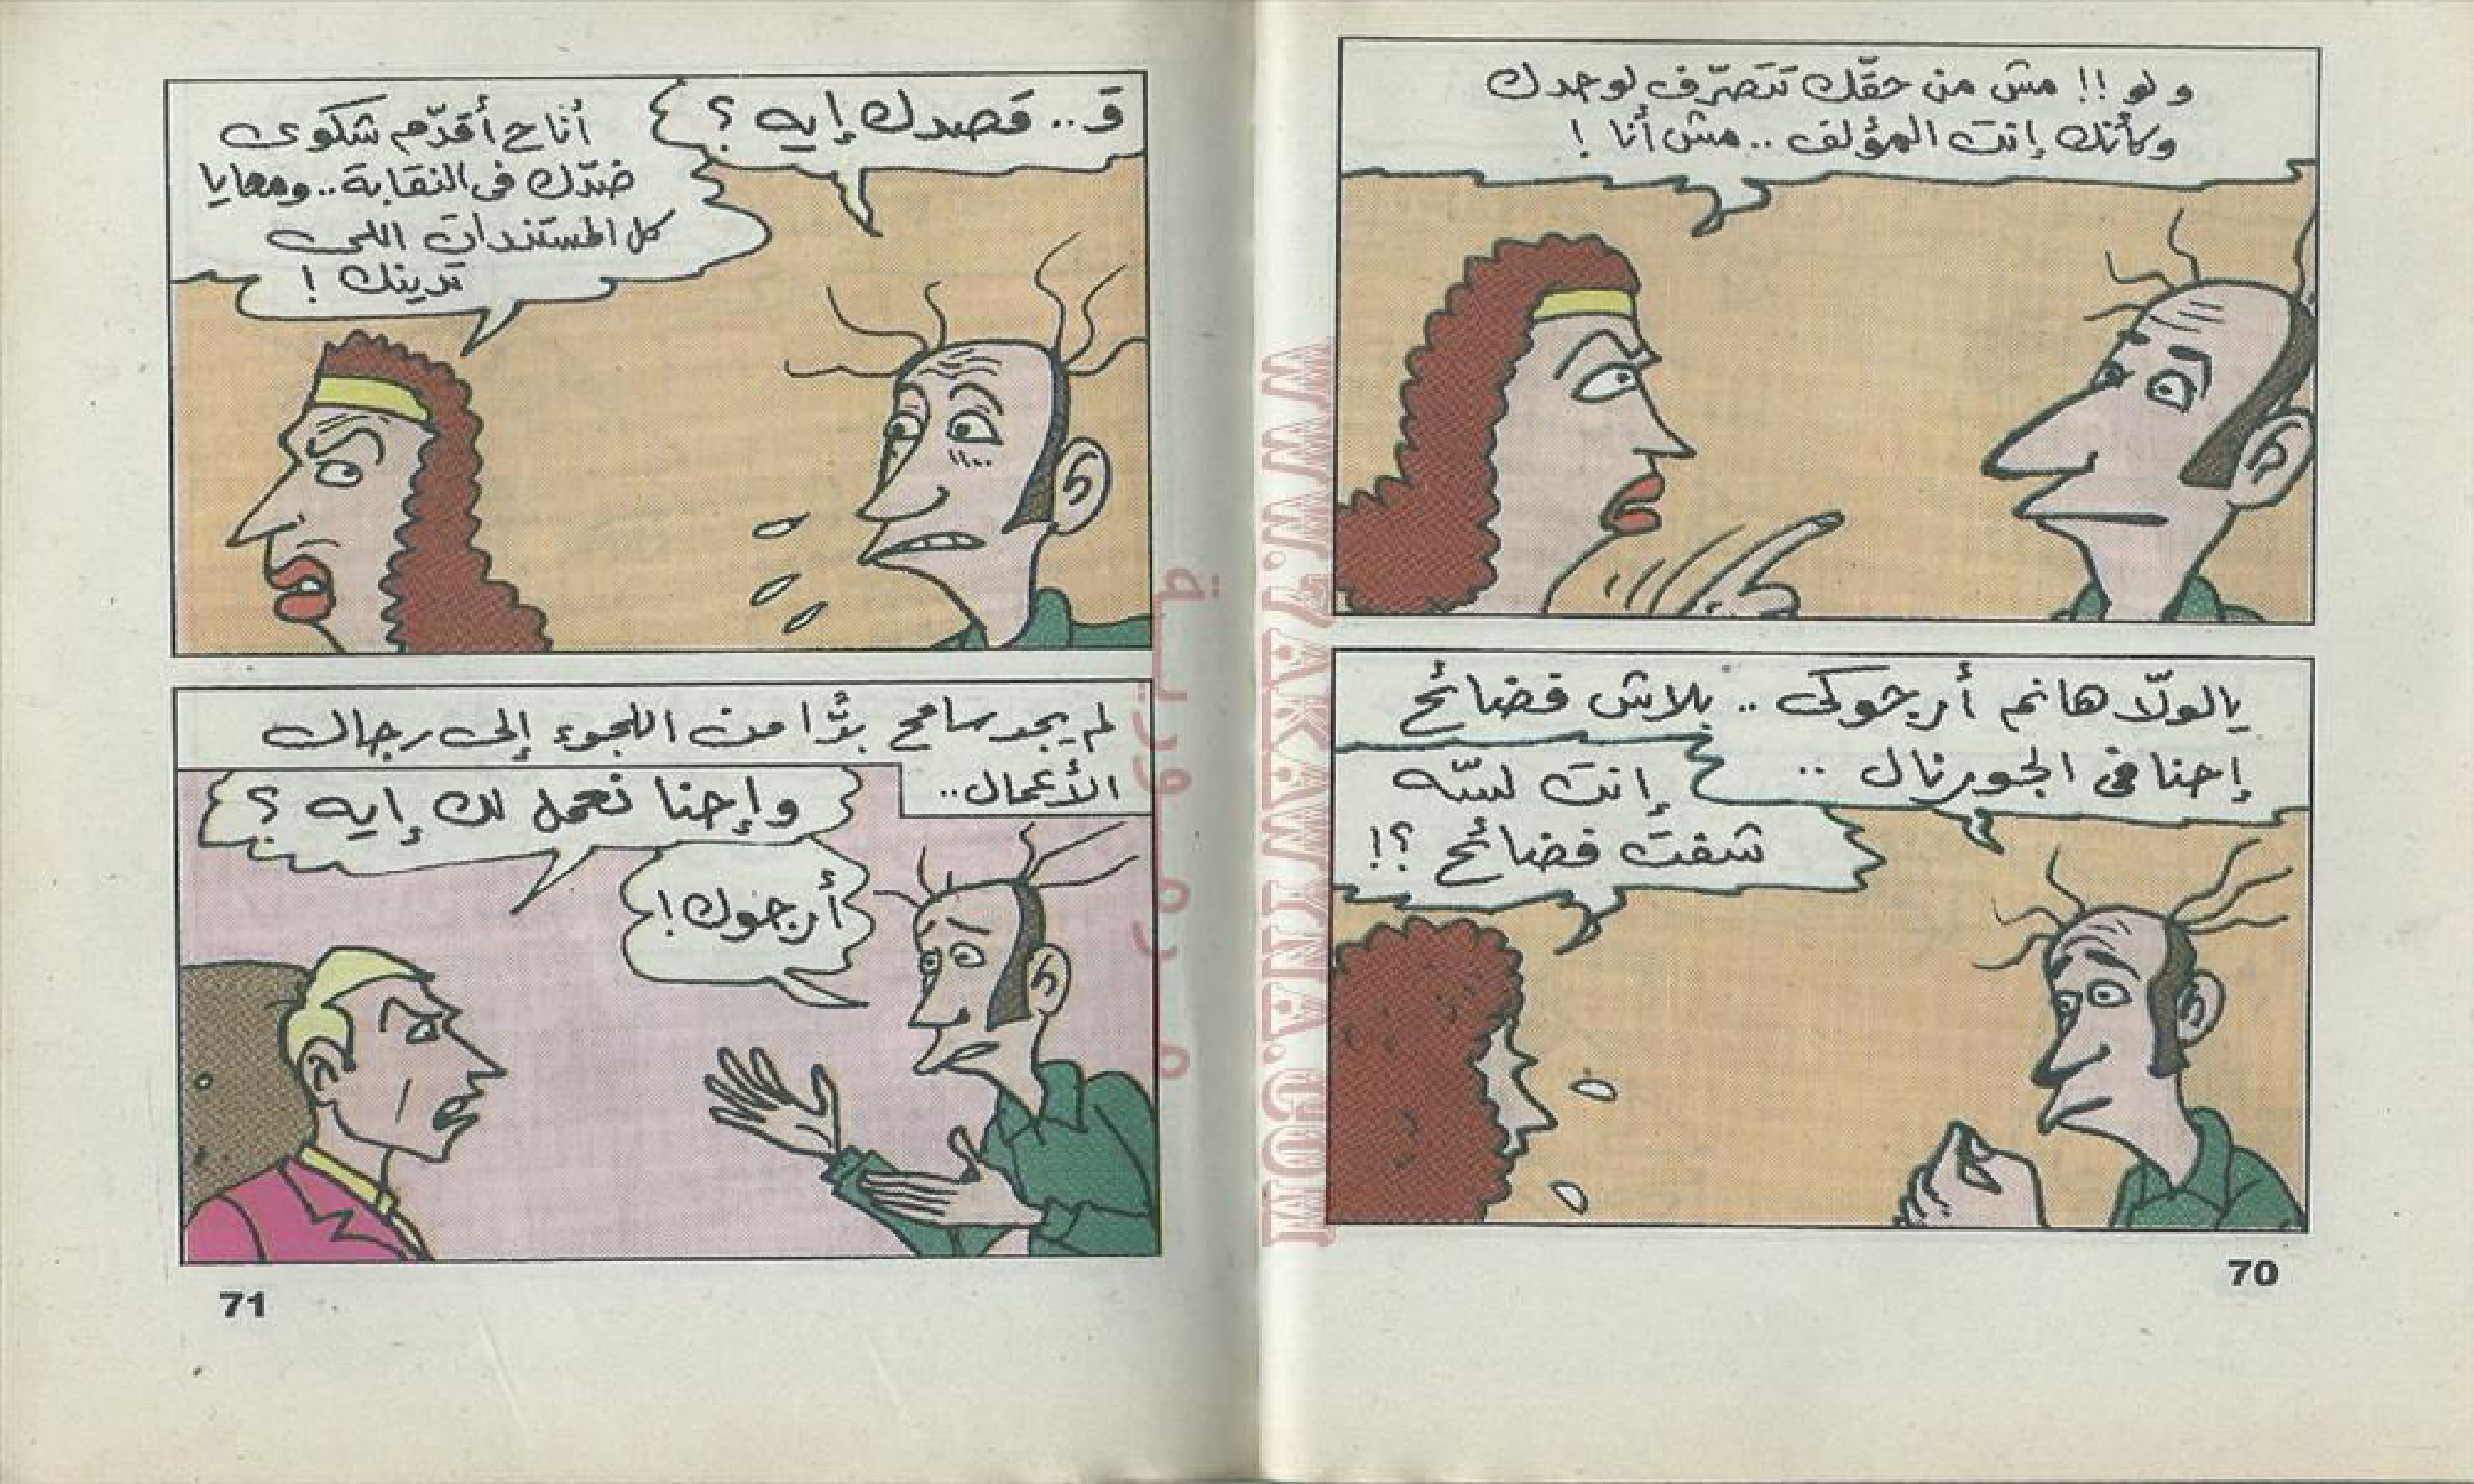 ولو!! مش من حقّك تتصرّف لوحدك
وكأنك إنت المؤلف.. مش أنا!
يالولّا هانم أرجوكى.. بلاش فضائح
إحنا فى الجورنال..
إنت لسّه
شفت فضائح ؟!
70
قَـ.. قصدك إيه ؟
أنا ح أقدّم شكوى
ضدّك فى النقابة.. ومعايا
كل المستندات اللى
تدينك !
لم يجد سامح بدًّا من اللجوء إلى رجال
الأعمال..
وإحنا نعمل لك إيه ؟
أرجوك!
71
WWW.7AKAWINA.COM